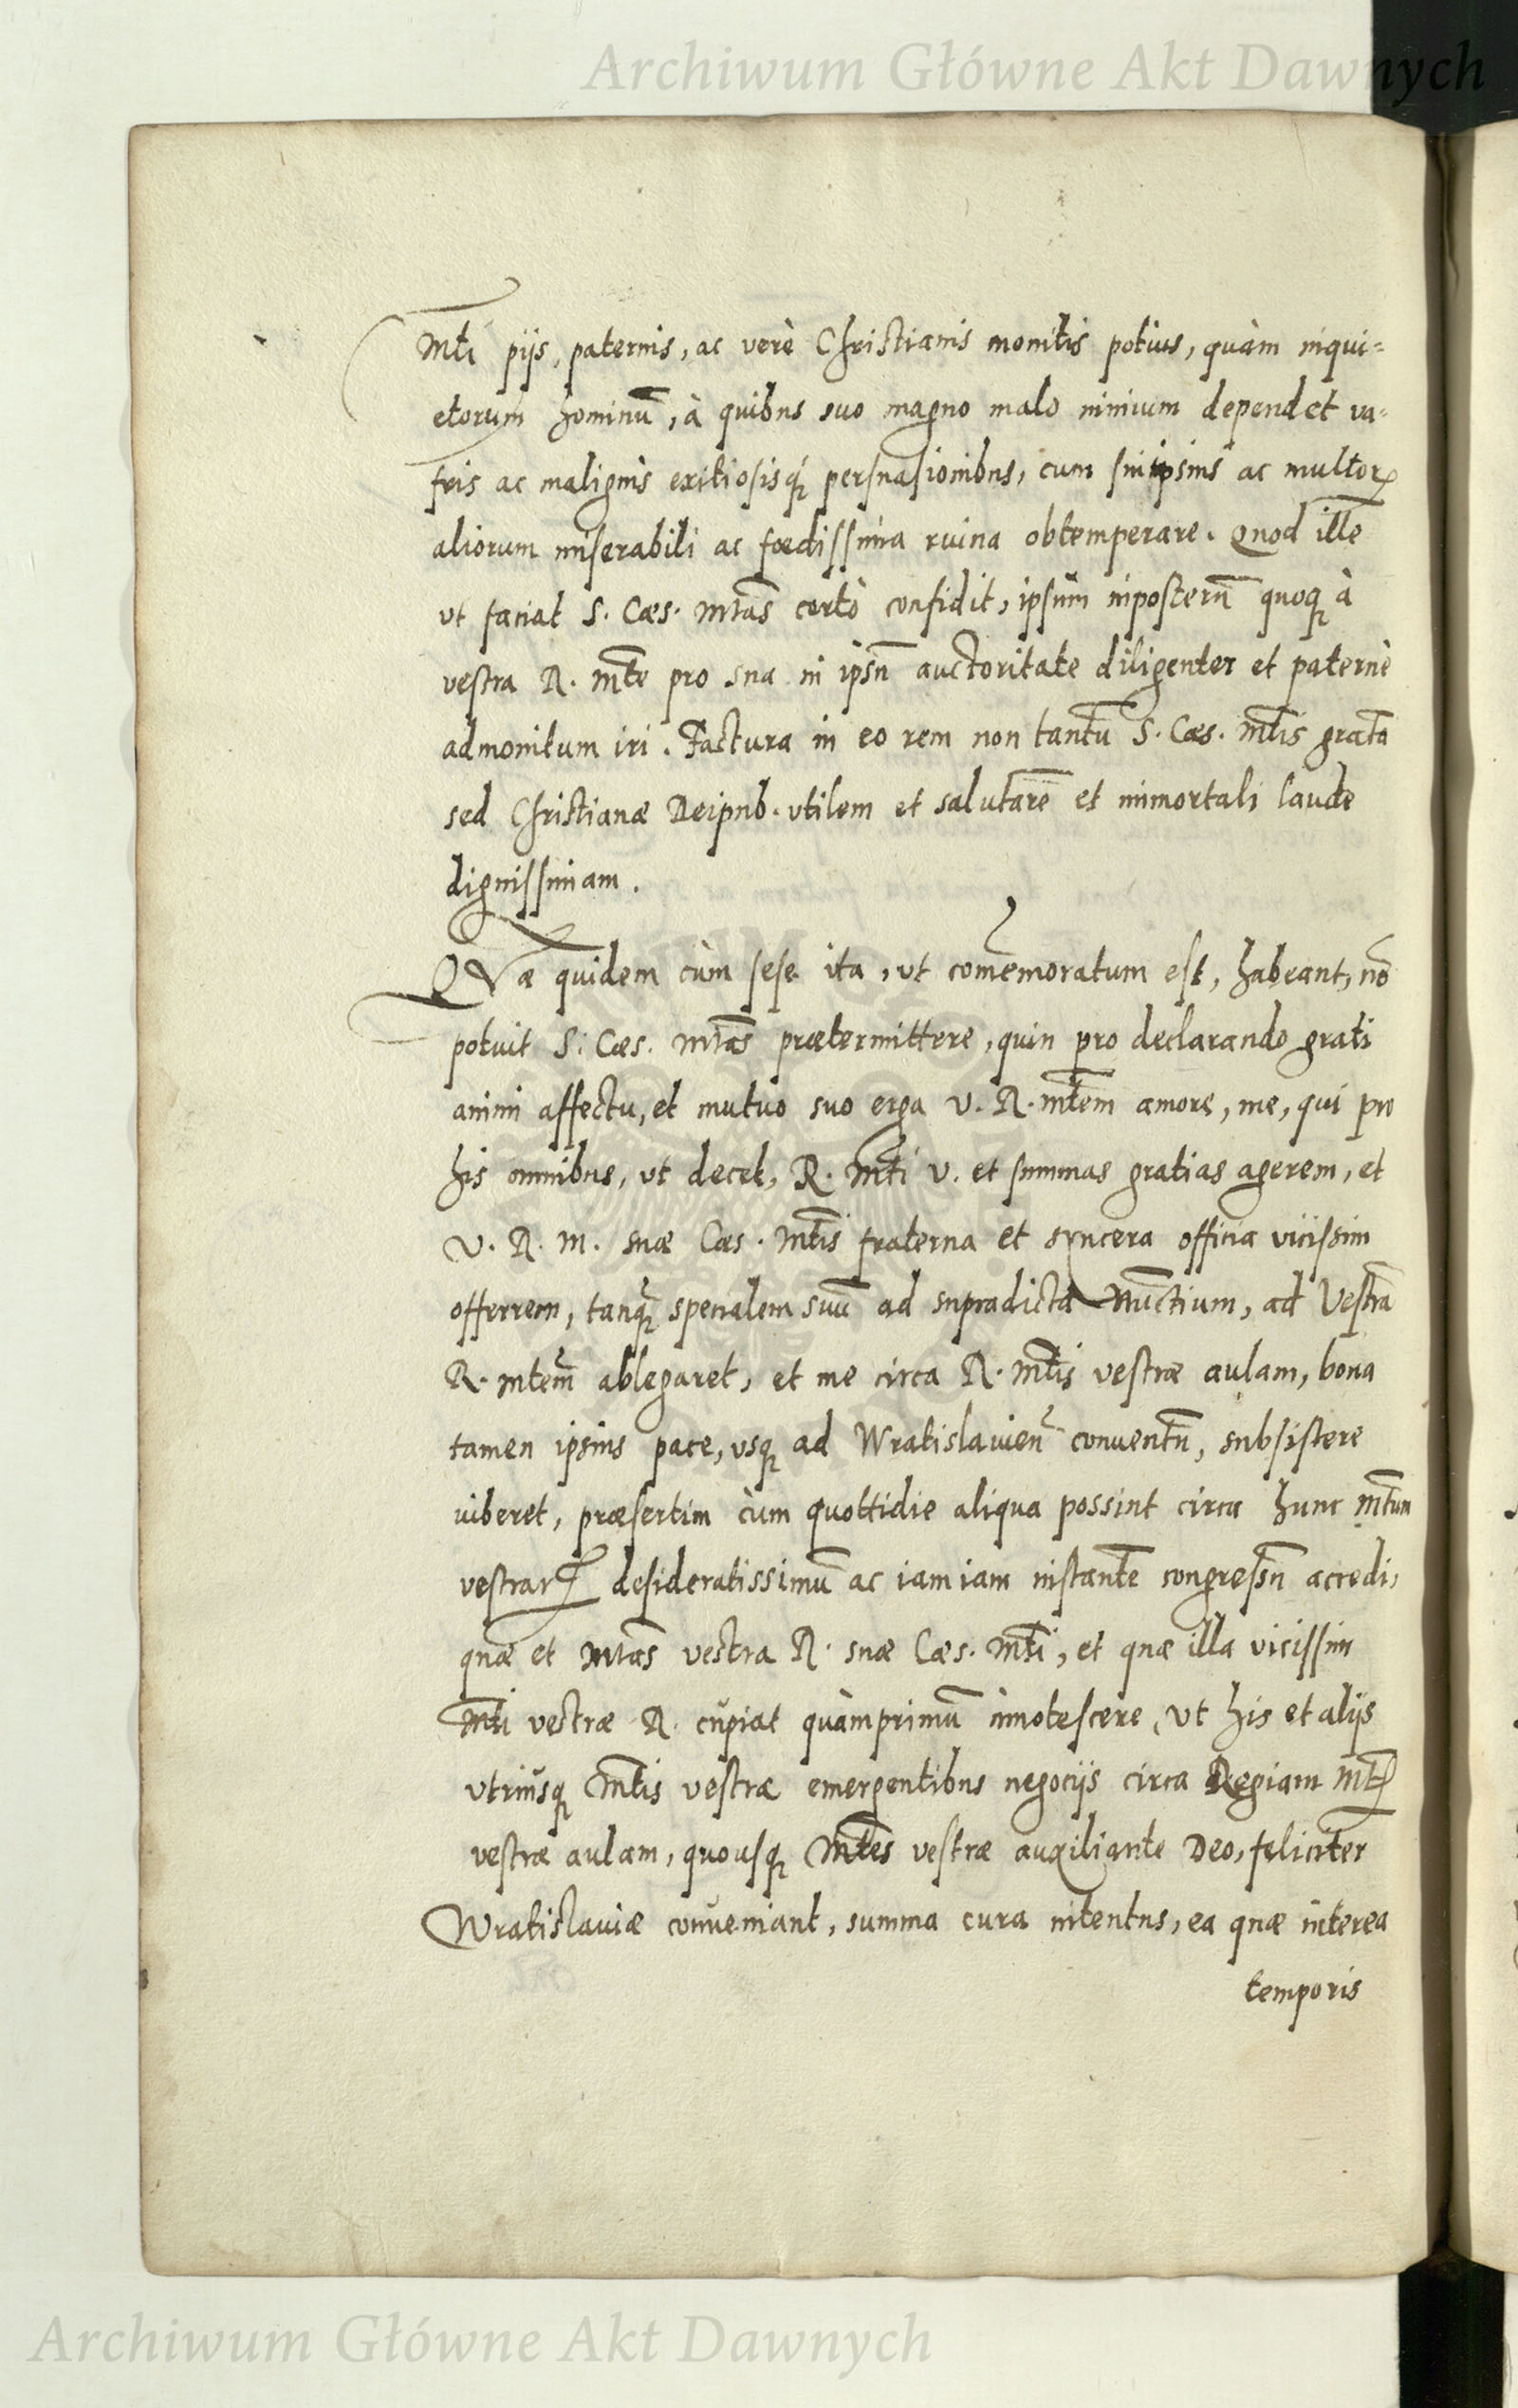 Archiwum Główne Akt Dawnych
Mti piis, paternis, ac verè Christianis monitis potius, quàm inqui=
etorum hominū, à quibus suo magno malo nimium dependet va=
fris ac malignis exitiosisq́ persuasionibus, cum sui ipsius ac multorꝝ
aliorum miserabili ac fœdissima ruina obtemperare. Quod ille
vt faciat S. Cæs. Mtas certò confidit, ipsum inposterū quoq à
vestra R. Mte pro sua in ipsū auctoritate diligenter et paternè
admonitum iri. Factura in eo rem non tantū S. Cæs. Mtis gratā
sed Christianæ Reipub. vtilem et salutarē et immortali laude
dignissimam.
QVæ quidem cùm sese ita, vt com̄emoratum est, habeant, nō
potuit S. Cæs. Mtas prætermittere, quin pro declarando grati
animi affectu, et mutuo suo erga V. R. Mtem amore, me, qui pro
his omnibus, vt decet, R. Mti V. et summas gratias agerem, et
V. R. M. suæ Cæs. Mtis fraterna et syncera officia vicissim
offerrem, tanq̃ specialem suū ad supradicta Nuctium, ad Vestrā
R. Mtem ablegaret, et me circa R. Mtis vestræ aulam, bona
tamen ipsius pace, vsq ad Wratislauien̄ conuentū, subsistere
iuberet, præsertim cùm quottidie aliqua possint circa hunc Mtum
vestrarꝝ desideratissimū ac iam iam instantē congressū accedi,
quæ et Mtas vestra R. suæ Cæs. Mti, et quæ illa vicissim
Mti vestræ R. cupiat quàmprimū innotescere, Vt his et alijs
vtriusq Mtis vestræ emergentibus negocijs circa Regiam Mtꝭ
vestræ aulam, quousq Mtes vestræ auxiliante Deo, feliciter
Wratislauiæ conueniant, summa cura intentus, ea quæ interea
temporis
Archiwum Główne Akt Dawnych